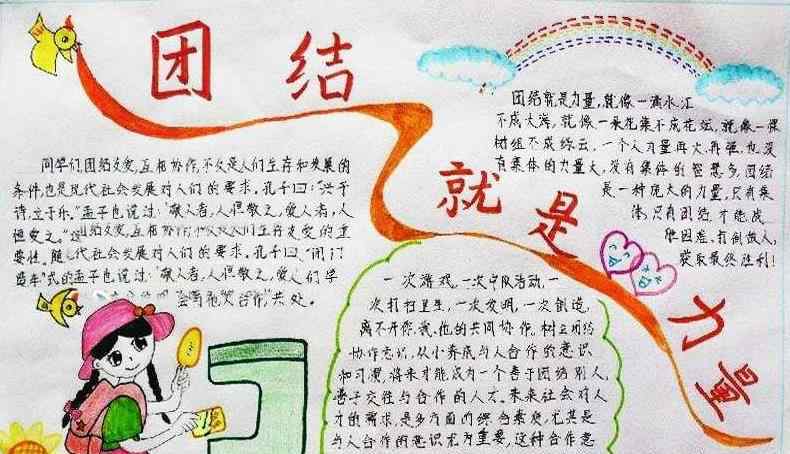 团结
就是
力量
同学们,团结友爱,互相协作,不仅是人们生存和发展的
条件,也是现代社会发展对人们的要求。孔子曰:"兴于
诗,立于乐。"孟子也说过:"敬人者,人恒敬之,爱人者,人
恒爱之。"团结友爱,互相协作
要性。随代社会发展对人们的要求。孔子曰:"闭门
造车"式的孟子也说过:"敬人者,人恒敬之,爱人们学
会合作,共处。
团结就是力量,就像一滴水汇
不成大海,就像一朵花集不成花坛,就像一棵
树组不成绿云,一个人力量再大,再强,也没
有集体的力量大,没有集体的智慧多,团结
是一种庞大的力量,只有集
体,只有团结,才能战
胜困难、打倒敌人,
获取最终胜利!
一次游戏,一次中队活动,一
次打扫卫生,一次发明,一次创造,
离不开你、我、他的共同协作。树立团结
协作意识,从小养成与人合作的意识
和习惯,将来才能成为一个善于团结别人,
善于交往与合作的人才。未来社会对人
才的需求,是多方面的综合素质,尤其是
与人合作的意识尤为重要,这种合作意